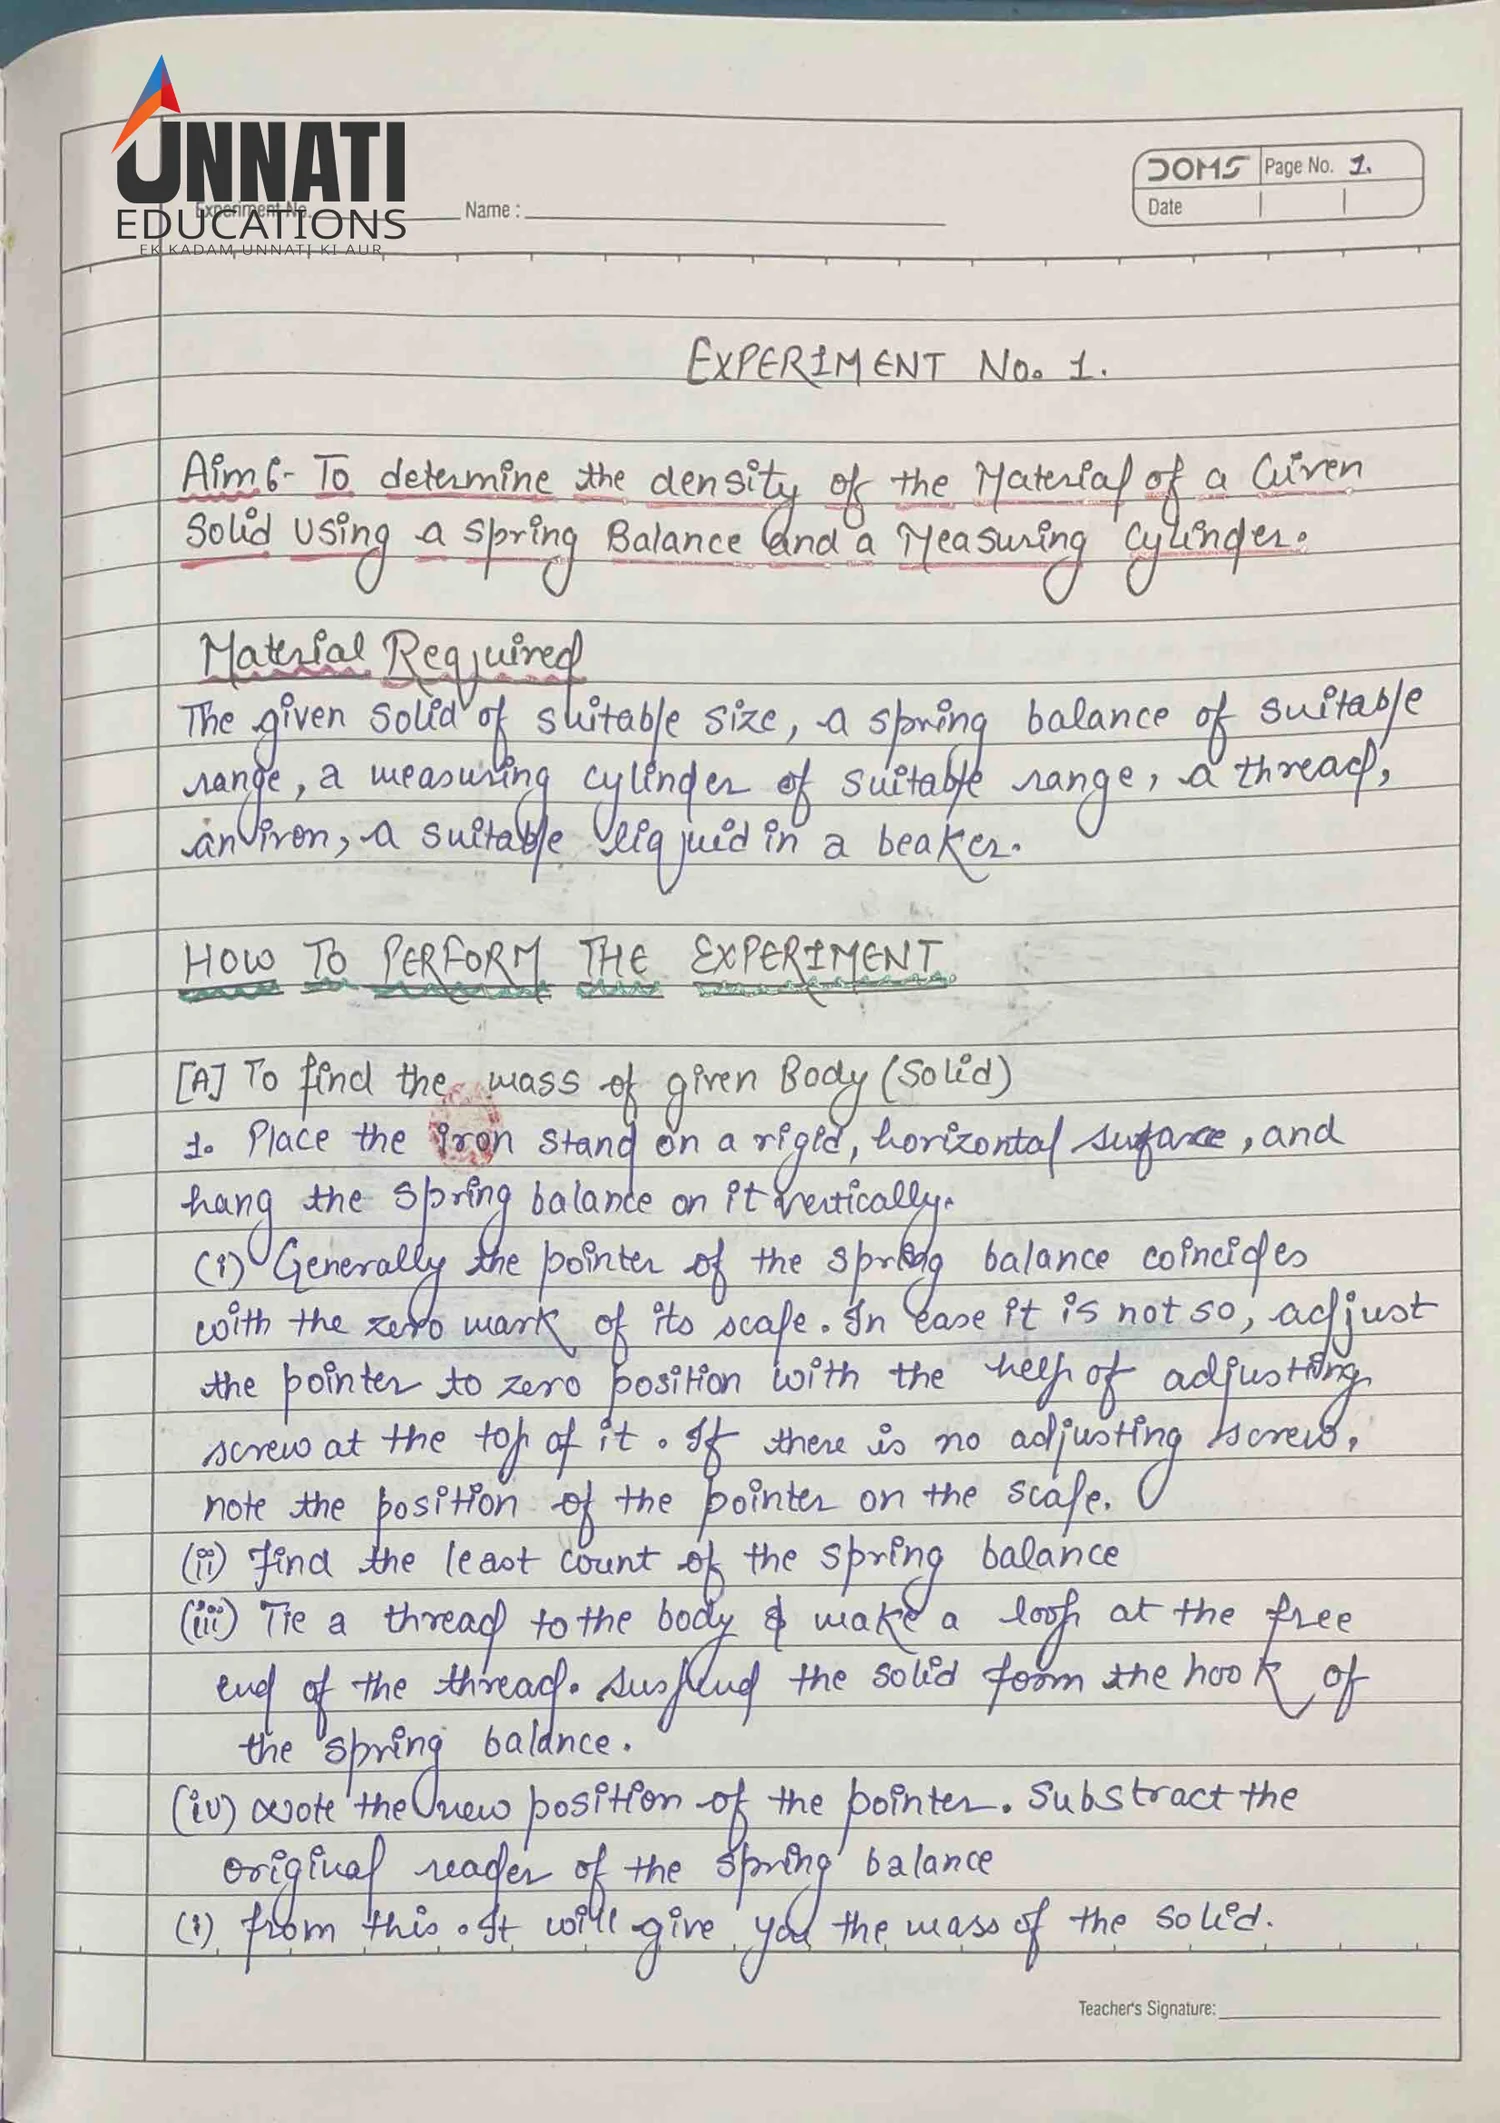 UNNATI
EDUCATIONS
EK KADAM UNNATI KI AUR
Experiment No. Name :
DOMS Page No. 1.
Date
EXPERIMENT No. 1.
Aim :- To determine the density of the Material of a Given
Solid using a spring Balance and a Measuring Cylinder.
Material Required
The given solid of suitable size, a spring balance of suitable
range, a measuring cylinder of suitable range, a thread,
an iron, a suitable liquid in a beaker.
HOW TO PERFORM THE EXPERIMENT
[A] To find the mass of given Body (Solid)
1. Place the iron stand on a rigid, horizontal surface, and
hang the spring balance on it vertically.
(i) Generally the pointer of the spring balance coincides
with the zero mark of its scale. In case it is not so, adjust
the pointer to zero position with the help of adjusting
screw at the top of it. If there is no adjusting screw,
note the position of the pointer on the scale.
(ii) find the least count of the spring balance
(iii) Tie a thread to the body & make a loop at the free
end of the thread. Suspend the solid form the hook of
the spring balance.
(iv) Note the new position of the pointer. Substract the
original reader of the spring balance
(i) from this. It will give you the mass of the solid.
Teacher's Signature: